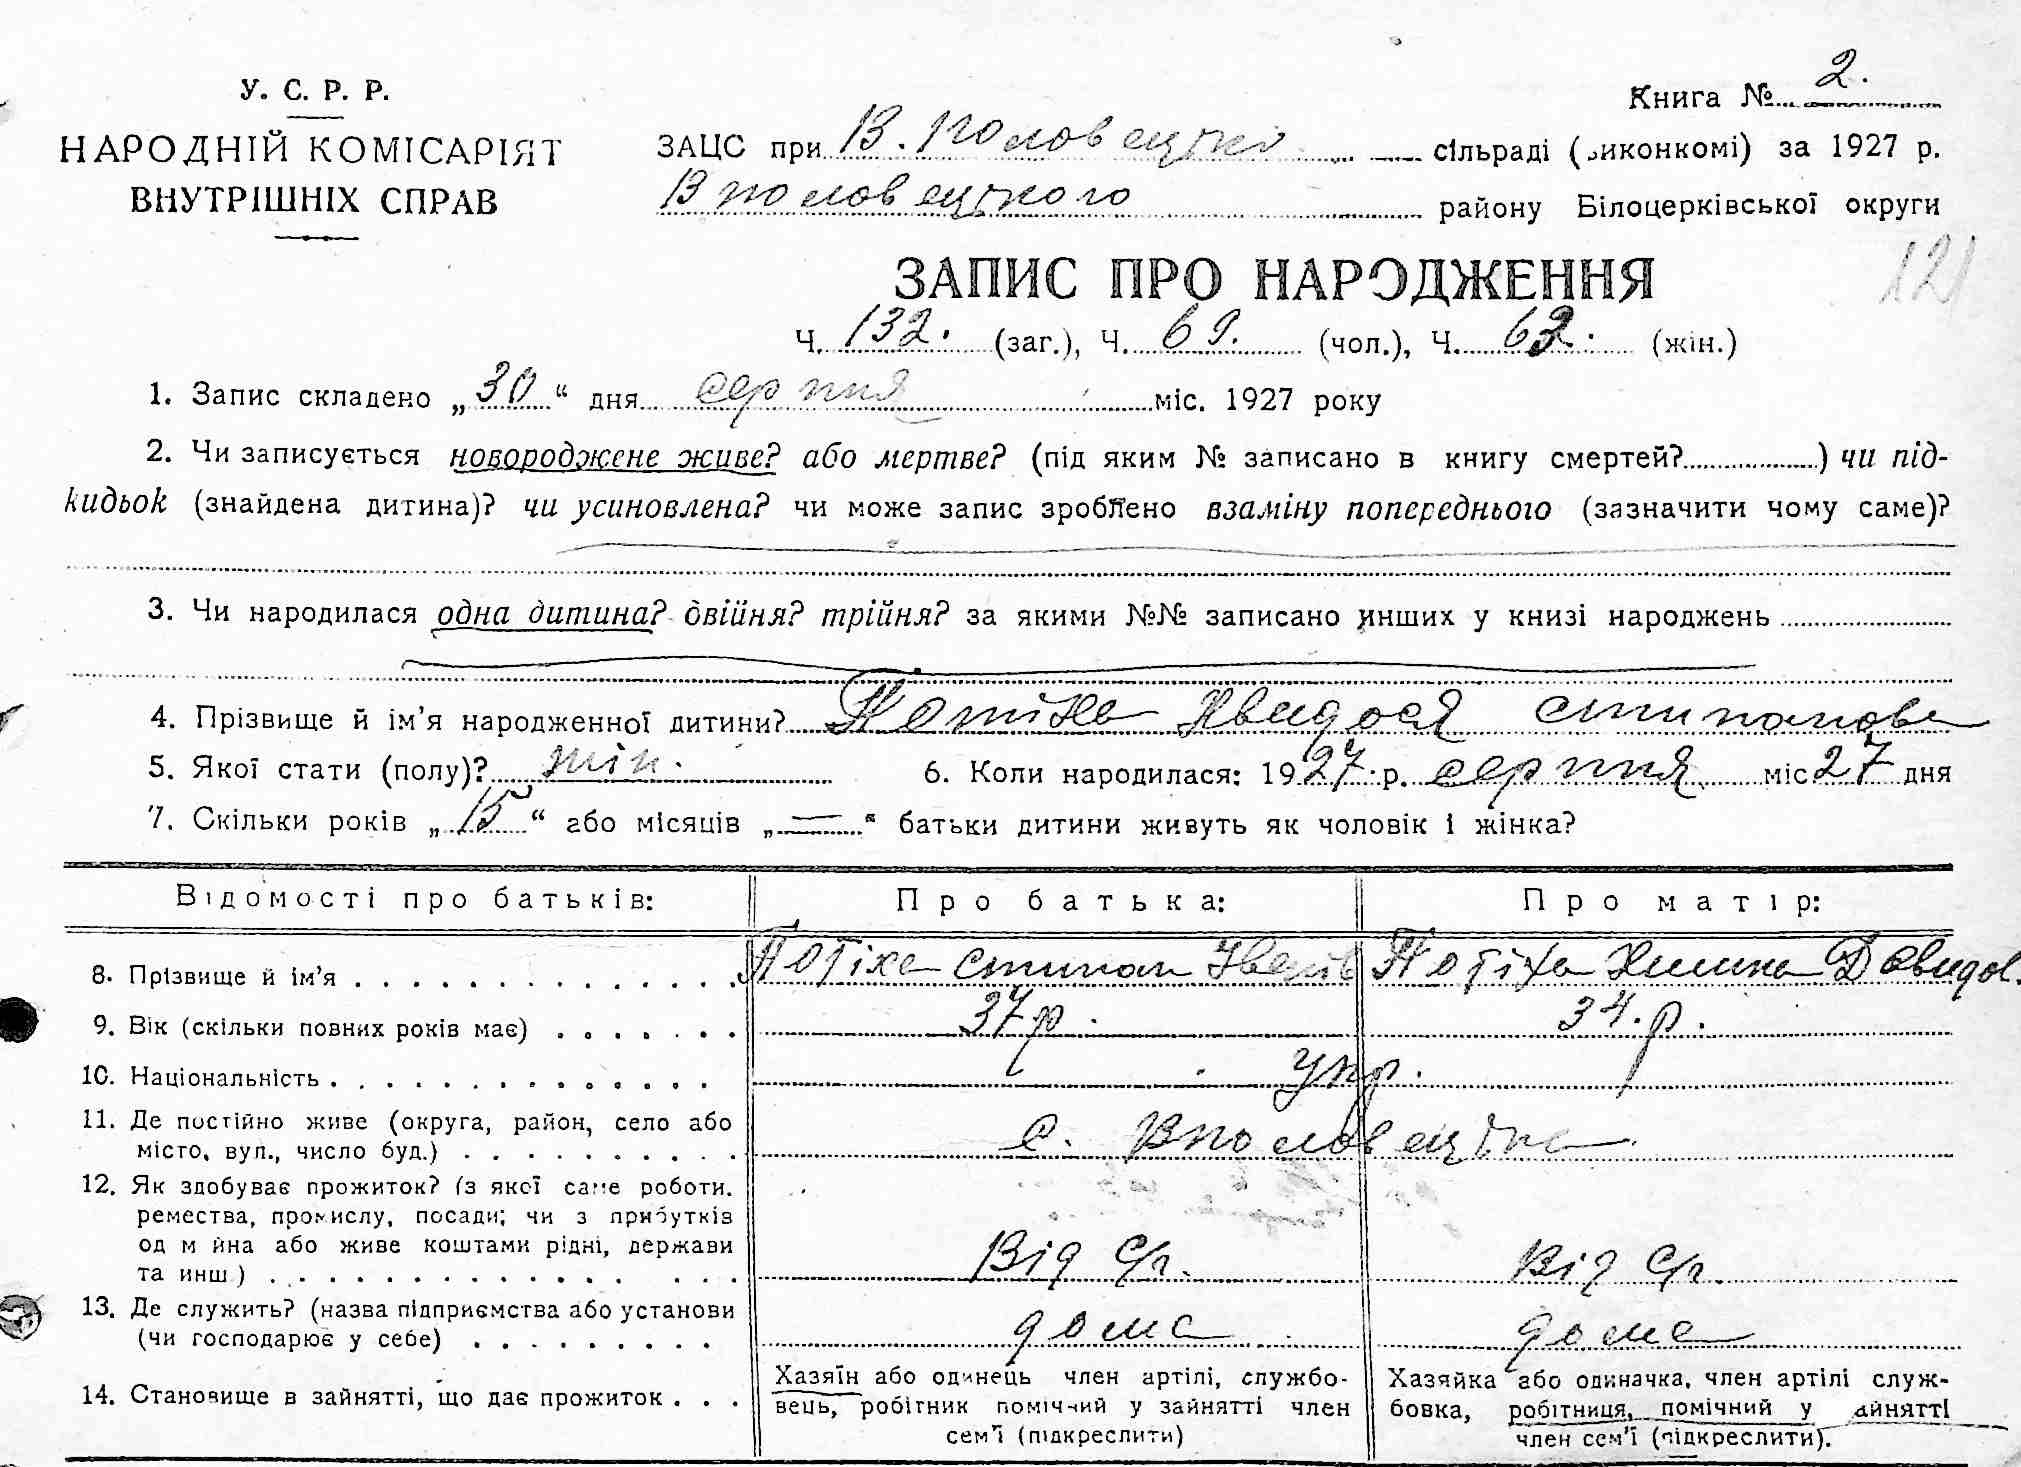 У. С. Р. Р.
НАРОДНІЙ КОМІСАРІЯТ
ВНУТРІШНІХ СПРАВ
Книга № 2.
ЗАЦС при В. Половецькій сільраді (виконкомі) за 1927 р.
В половецького району Білоцерківської округи
121
ЗАПИС ПРО НАРОДЖЕННЯ
Ч. 132. (заг.), Ч. 69. (чол.), Ч. 63. (жін.)
1. Запис складено „30“ дня серпня міс. 1927 року
2. Чи записується новороджене живе? або мертве? (під яким № записано в книгу смертей? ) чи під-
кидьок (знайдена дитина)? чи усиновлена? чи може запис зроблено взаміну попереднього (зазначити чому саме)?
3. Чи народилася одна дитина? двійня? трійня? за якими №№ записано инших у книзі народжень
4. Прізвище й ім’я народженної дитини? Потіха Явидося Стипанова
5. Якої стати (полу)? жін. 6. Коли народилася: 1927 р. серпня міс 27 дня
7. Скільки років „15“ або місяців „—“ батьки дитини живуть як чоловік і жінка?
Відомості про батьків: Про батька: Про матір:
8. Прізвище й ім’я Потіха Стипан Іванів Потіха Давидов.
9. Вік (скільки повних років має) 37 р. 34. р.
10. Національність укр.
11. Де постійно живе (округа, район, село або
місто, вул., число буд.) с. Вполовецьке
12. Як здобуває прожиток? (з якої саме роботи.
ремества, промислу, посади; чи з прибутків
од майна або живе коштами рідні, держави
та инш.) Від с/г. Від с/г.
13. Де служить? (назва підприємства або установи
(чи господарює у себе) дома дома
14. Становище в зайнятті, що дає прожиток
Хазяїн або одинець член артілі, службо-
вець, робітник помічний у зайнятті член
сем’ї (підкреслити)
Хазяйка або одиначка, член артілі служ-
бовка, робітниця, помічний у зайнятті
член сем’ї (підкреслити).